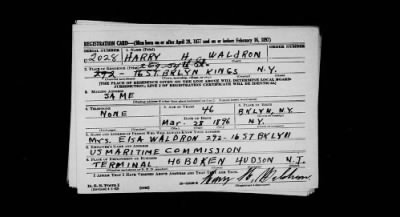 REGISTRATION CARD—(Men born on or after April 28, 1877 and on or before February 16, 1897)
SERIAL NUMBER
1. NAME (Print)
ORDER NUMBER
U 2028 HARRY H. WALDRON
2. PLACE OF RESIDENCE (Print)
272 - 16 ST BKLYN KINGS N.Y.
[THE PLACE OF RESIDENCE GIVEN ON THE LINE ABOVE WILL DETERMINE LOCAL BOARD
JURISDICTION; LINE 2 OF REGISTRATION CERTIFICATE WILL BE IDENTICAL]
3. MAILING ADDRESS
SAME
4. TELEPHONE
5. AGE IN YEARS
6. PLACE OF BIRTH
NONE
46
BKLYN, N.Y.
DATE OF BIRTH
Mar. - 28 1896
N.Y.
7. NAME AND ADDRESS OF PERSON WHO WILL ALWAYS KNOW YOUR ADDRESS
Mrs. ELSA WALDRON 272-16 ST BKLYN
8. EMPLOYER'S NAME AND ADDRESS
US MARITIME COMMISSION
9. PLACE OF EMPLOYMENT OR BUSINESS
TERMINAL HOBOKEN HUDSON N.J.
I AFFIRM THAT I HAVE VERIFIED ABOVE ANSWERS AND THAT THEY ARE TRUE.
D. S. S. Form 1
Harry H. Waldron